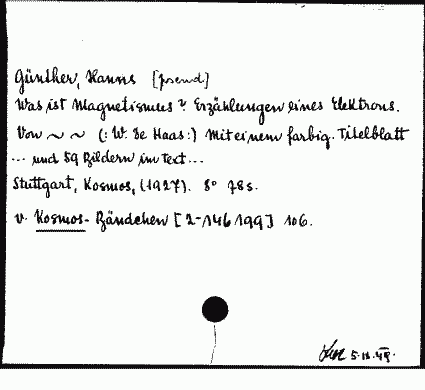 Günther, Hanns [pseud.]
Was ist Magnetismus? Erzählungen eines Elektrons.
Von ~ ~ (: W. de Haas :) Mit einem farbig. Titelblatt
... und 59 Bildern im Text...
Stuttgart, Kosmos, (1927). 8° 78 s.
v. Kosmos-Bändchen [2-146199] 106.
5. 48.